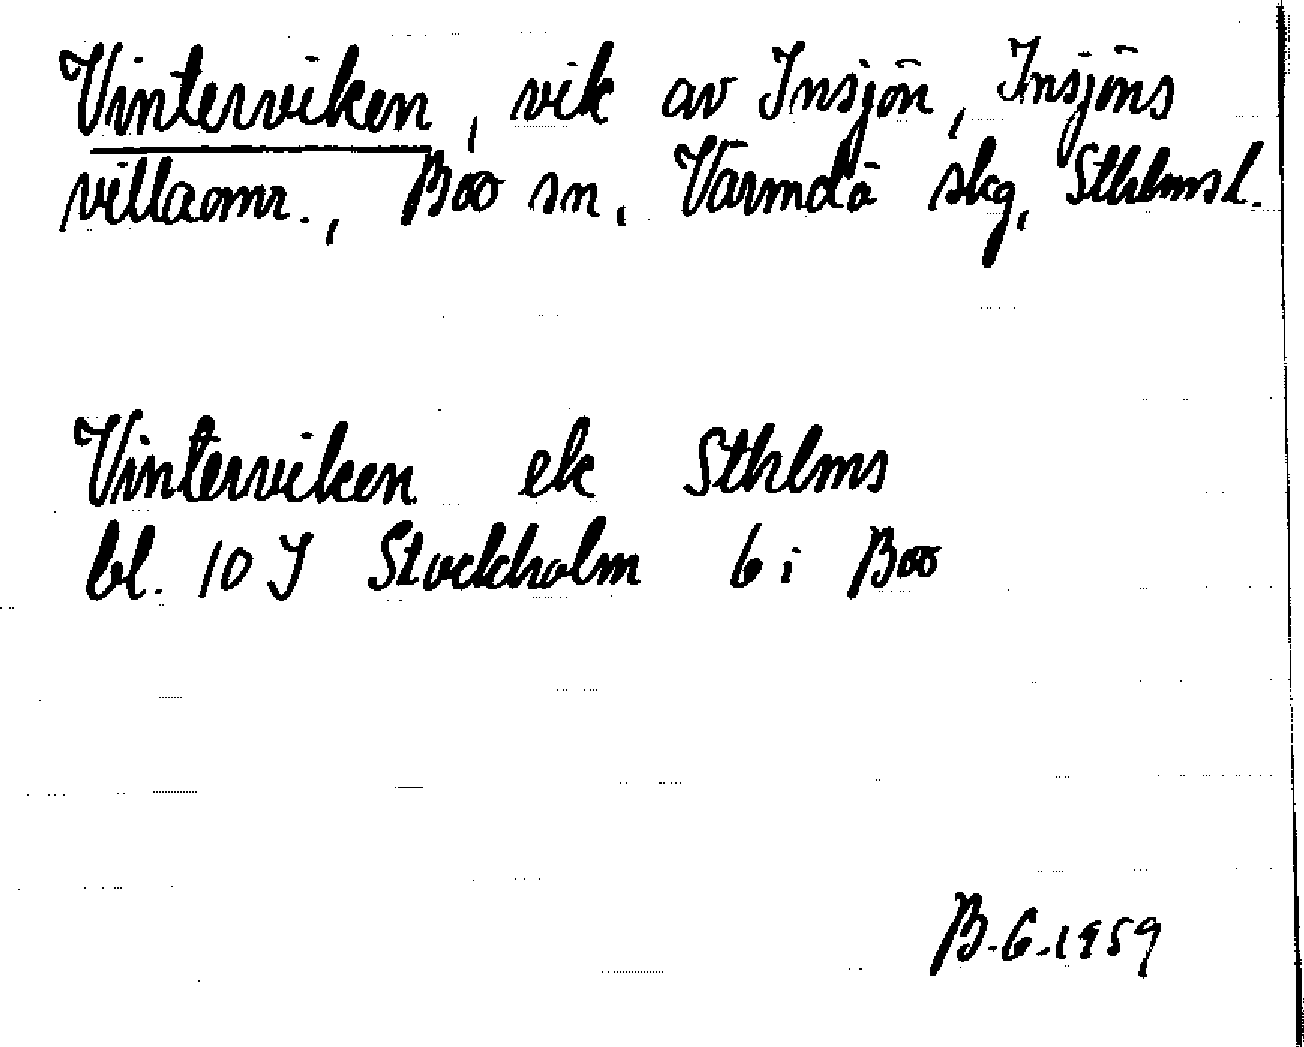 Vinterviken, vik av Insjön, Insjöns
villaomr., Boo sn, Värmdö skg, Sthlms l.
Vinterviken ek Sthlms
bl. 10 J Stockholm 6 i Boo
B. G. 1959